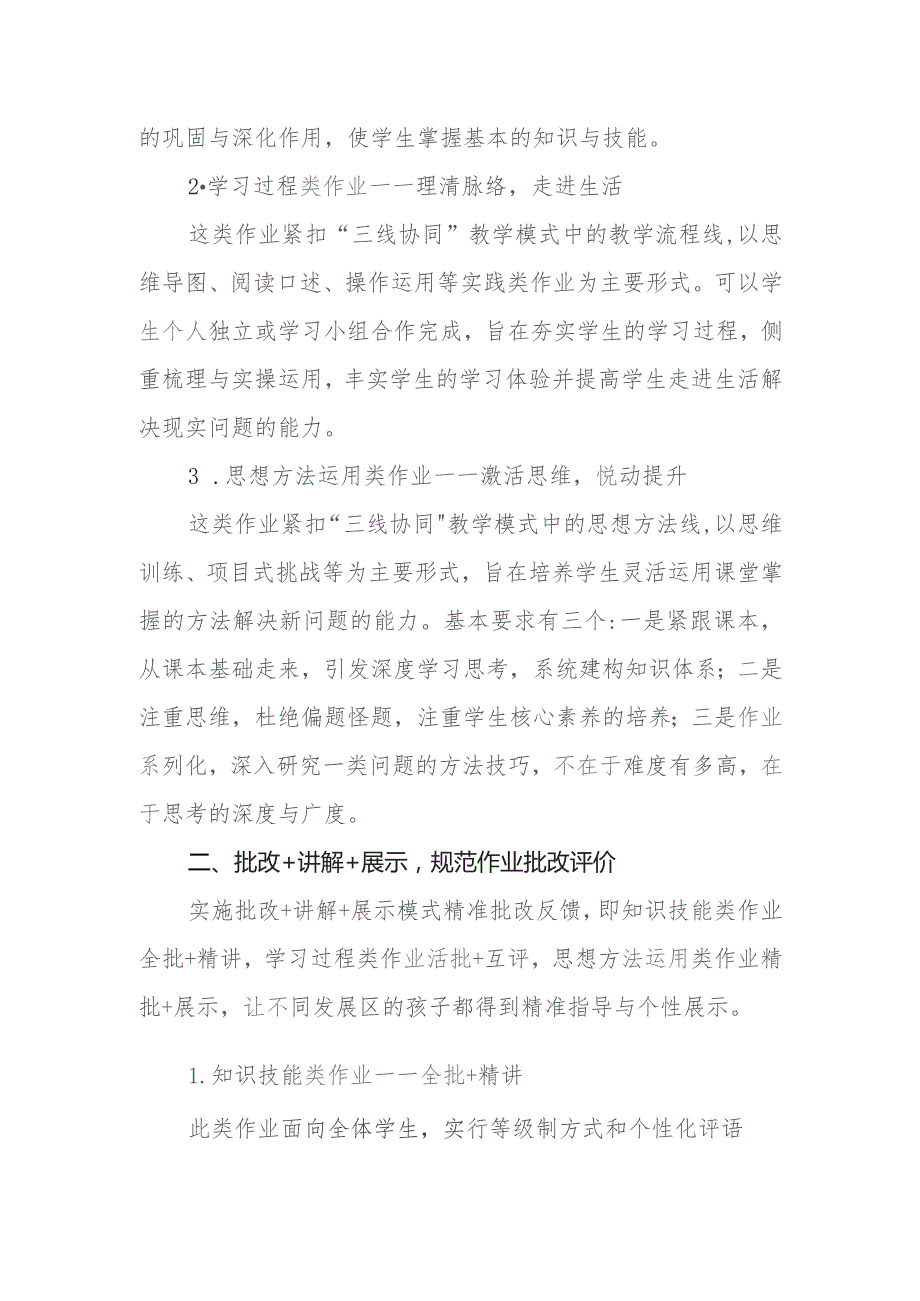 的巩固与深化作用，使学生掌握基本的知识与技能。
2•学习过程类作业一一理清脉络，走进生活
这类作业紧扣“三线协同”教学模式中的教学流程线,以思
维导图、阅读口述、操作运用等实践类作业为主要形式。可以学
生个人独立或学习小组合作完成，旨在夯实学生的学习过程，侧
重梳理与实操运用，丰实学生的学习体验并提高学生走进生活解
决现实问题的能力。
3 .思想方法运用类作业一一激活思维，悦动提升
这类作业紧扣“三线协同"教学模式中的思想方法线,以思维
训练、项目式挑战等为主要形式，旨在培养学生灵活运用课堂掌
握的方法解决新问题的能力。基本要求有三个:一是紧跟课本，
从课本基础走来，引发深度学习思考，系统建构知识体系；二是
注重思维，杜绝偏题怪题，注重学生核心素养的培养；三是作业
系列化，深入研究一类问题的方法技巧，不在于难度有多高，在
于思考的深度与广度。
二、批改+讲解+展示，规范作业批改评价
实施批改+讲解+展示模式精准批改反馈,即知识技能类作业
全批+精讲，学习过程类作业活批+互评，思想方法运用类作业精
批+展示，让不同发展区的孩子都得到精准指导与个性展示。
1.知识技能类作业一一全批+精讲
此类作业面向全体学生，实行等级制方式和个性化评语